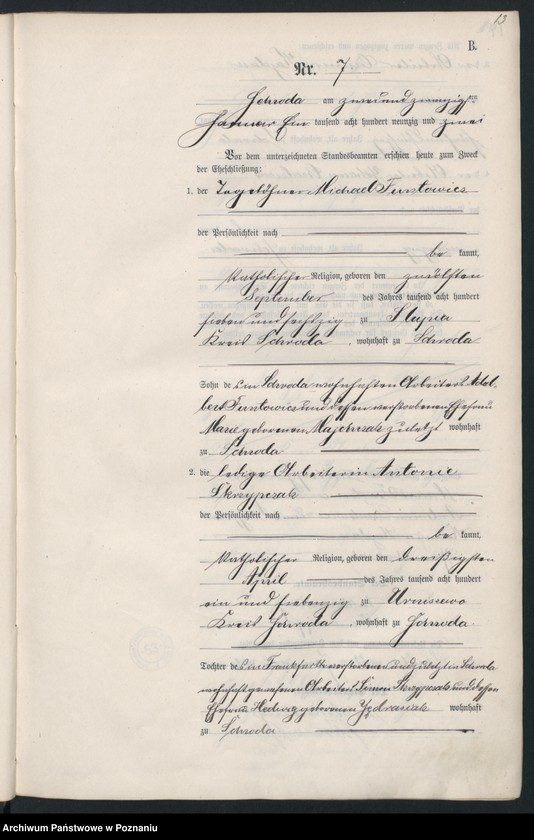 13
B.
Nr. 7
Schroda am zweiundzwanzigsten
Januar Ein tausend acht hundert neunzig und zwei
Vor dem unterzeichneten Standesbeamten erschien heute zum Zweck
der Eheschließung:
1. der Tagelöhner Michael Funtowicz
der Persönlichkeit nach
be kannt,
katholischer Religion, geboren den zwölften
September des Jahres tausend acht hundert
sieben und sechszig zu Slupia
Kreis Schroda, wohnhaft zu Schroda
Sohn des in Schroda wohnhaften Arbeiters Adal
bert Funtowicz und dessen verstorbenen Ehefrau
Marie geborenen Majchrzak zuletzt wohnhaft
zu Schroda
2. die ledige Arbeiterin Antonie
Skrzypczak
der Persönlichkeit nach
be kannt,
katholischer Religion, geboren den dreißigsten
April des Jahres tausend acht hundert
ein und siebenzig zu Urniszewo
Kreis Schroda, wohnhaft zu Schroda
Tochter des in Frankfurt verstorbenen und zuletzt in Schroda
wohnhaft gewesenen Arbeiters Simon Skrzypczak und dessen
Ehefrau Hedwig geborenen Jędrasiak wohnhaft
zu Schroda
Archiwum Państwowe w Poznaniu